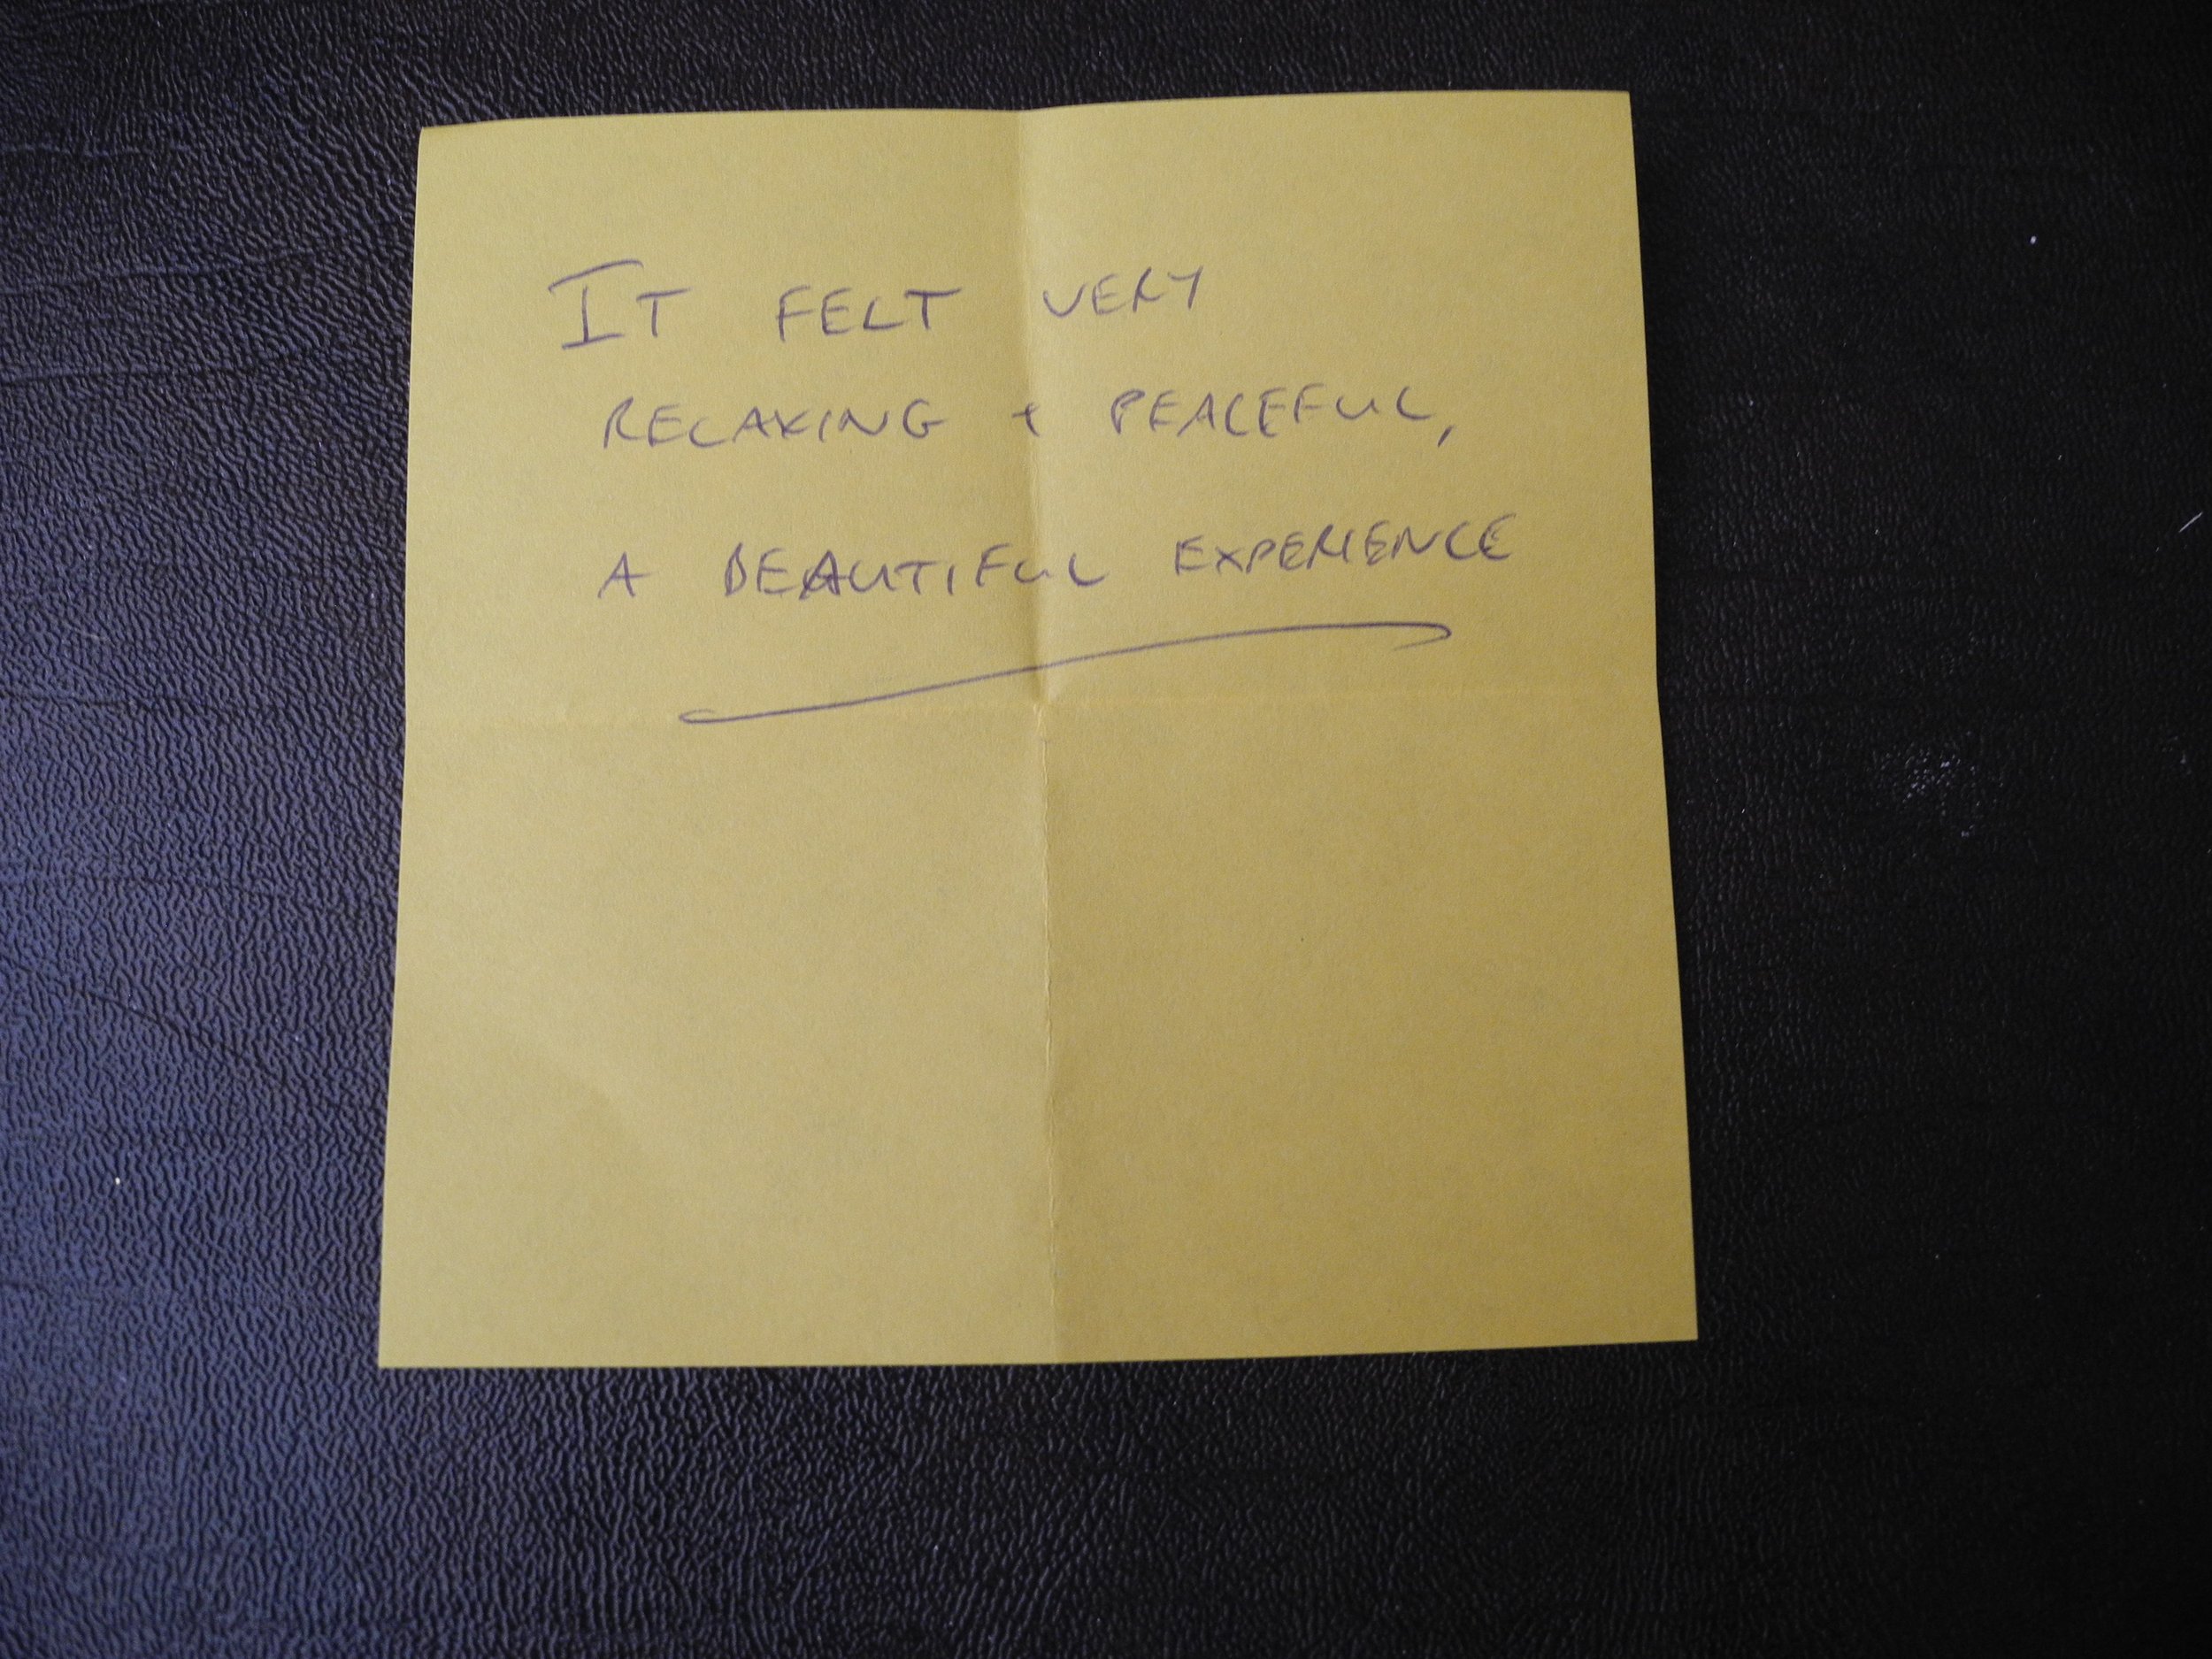 IT FELT VERY
RELAXING + PEACEFUL,
A BEAUTIFUL EXPERIENCE